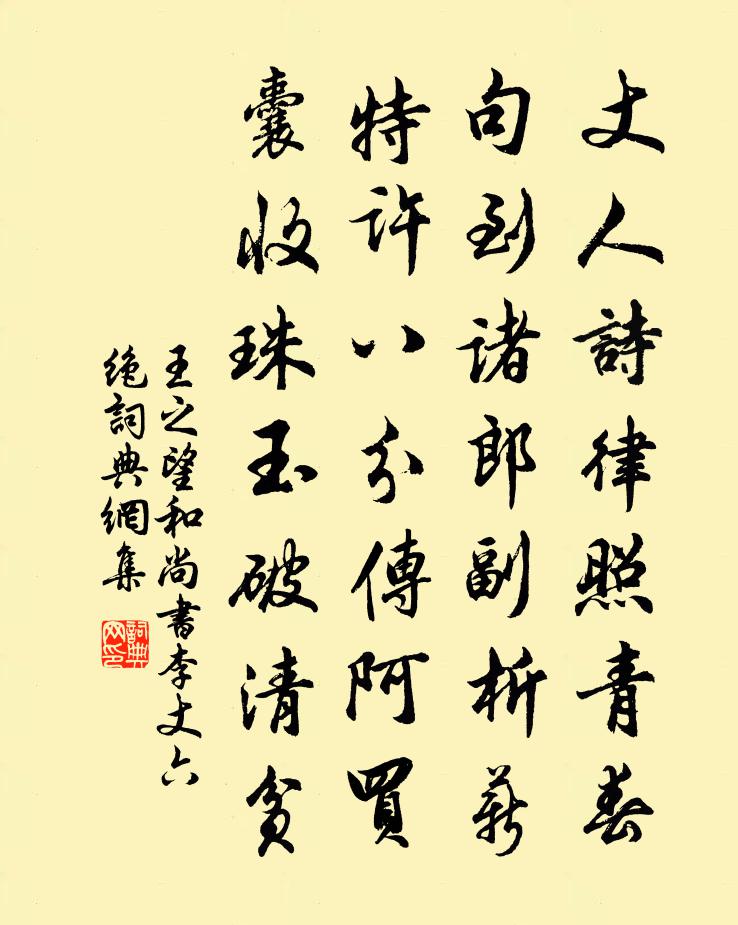 丈人詩律照青春
句到諸郎副析薪
特許八分傳阿買
囊收珠玉破清貧
王之望和尚書李丈六
絶詞典網集
詞典網印